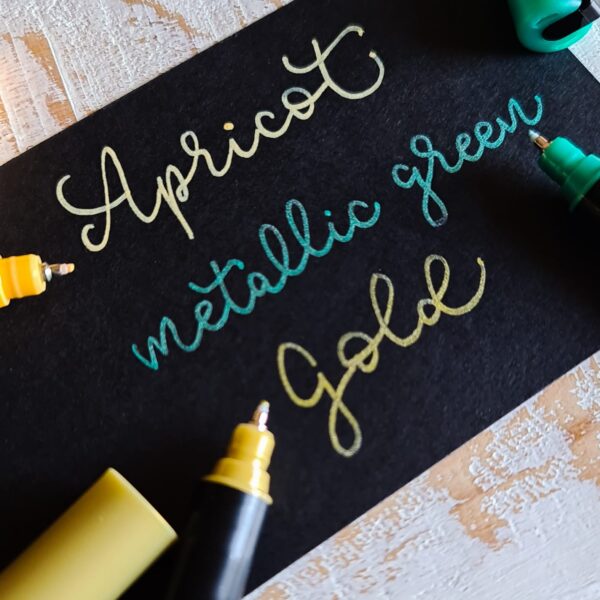 Apricot
metallic green
Gold